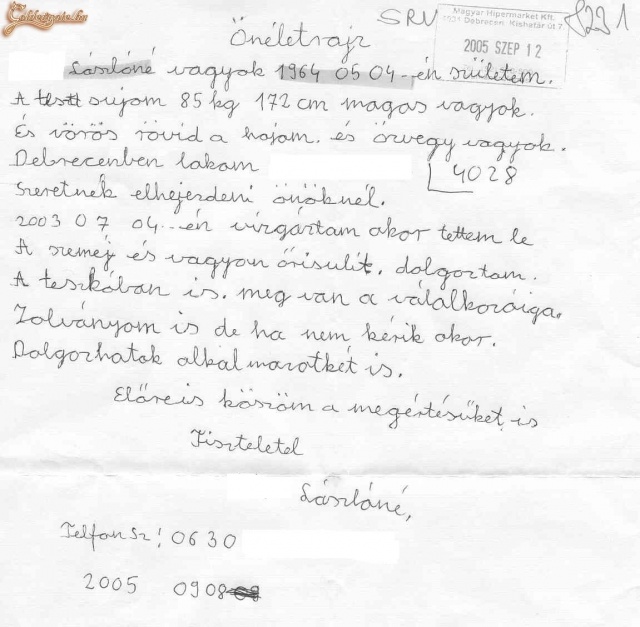 Goldengate.hu
SRV
8231
Magyar Hipermarket Kft.
4031 Debrecen, Kishatár út 7.
2005 SZEP 12
Önéletrajz
Lászlóné vagyok 1964 05 04-én születem.
A sujom 85 kg 172 cm magas vagyok.
És vörös rövid a hajam. és özvegy vagyok.
Debrecenben lakom
4028
Szeretnék elhejezdeni önöknél.
2003 07 04-én vizgáztam akor tettem le
A szeméj és vagyon őrisulit. dolgoztam.
A teszkóban is. meg van a válalkozóiga.
Zolványom is de ha nem kérik akor.
Dolgozhatok alkalmazotkét is.
Előreis köszöm a megértésüket is
Tiszteletel
Lászlóné,
Telfonsz: 0630
2005 0908